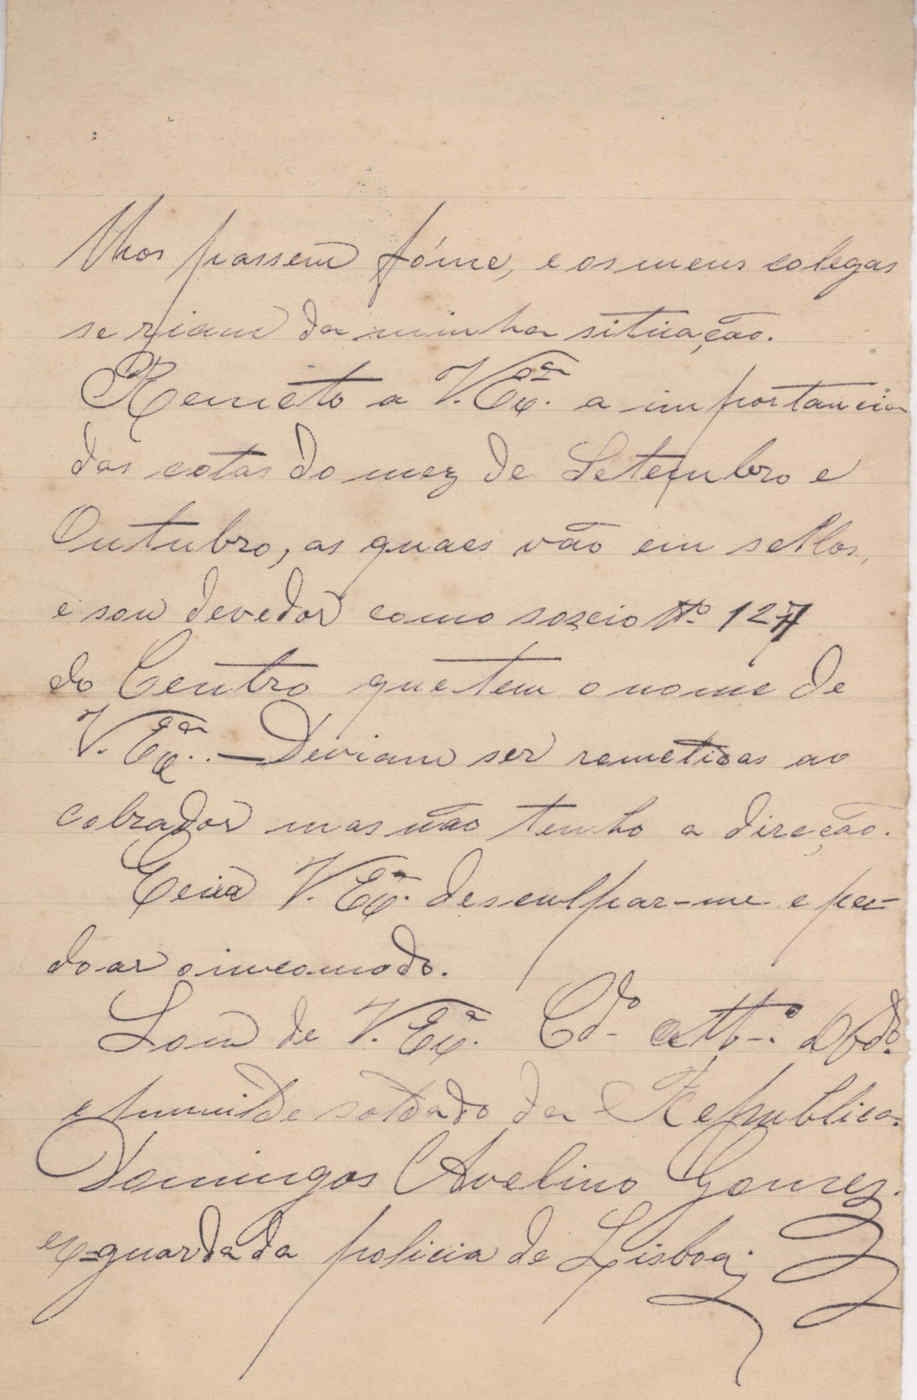 lhos passem fóme, e os meus colegas
se riam da minha situação.
Remeto a V. Exª. a importancia
das cotas do mez de Setembro e
Outubro, as quaes vão em sellos,
e sou devedor como soscio Nº. 127
do Centro que tem o nome de
V. Exª. — Deviam ser remetidas ao
cobrador mas não tenho a direção.
V. Exª. desculpar-me e per-
doar o incomodo.
Sou de V. Exª. Cdº. attº. Obdº.
e humilde soldado da Republica.
Domingos Avelino Gomes.
ex-guarda da policia de Lisboa.